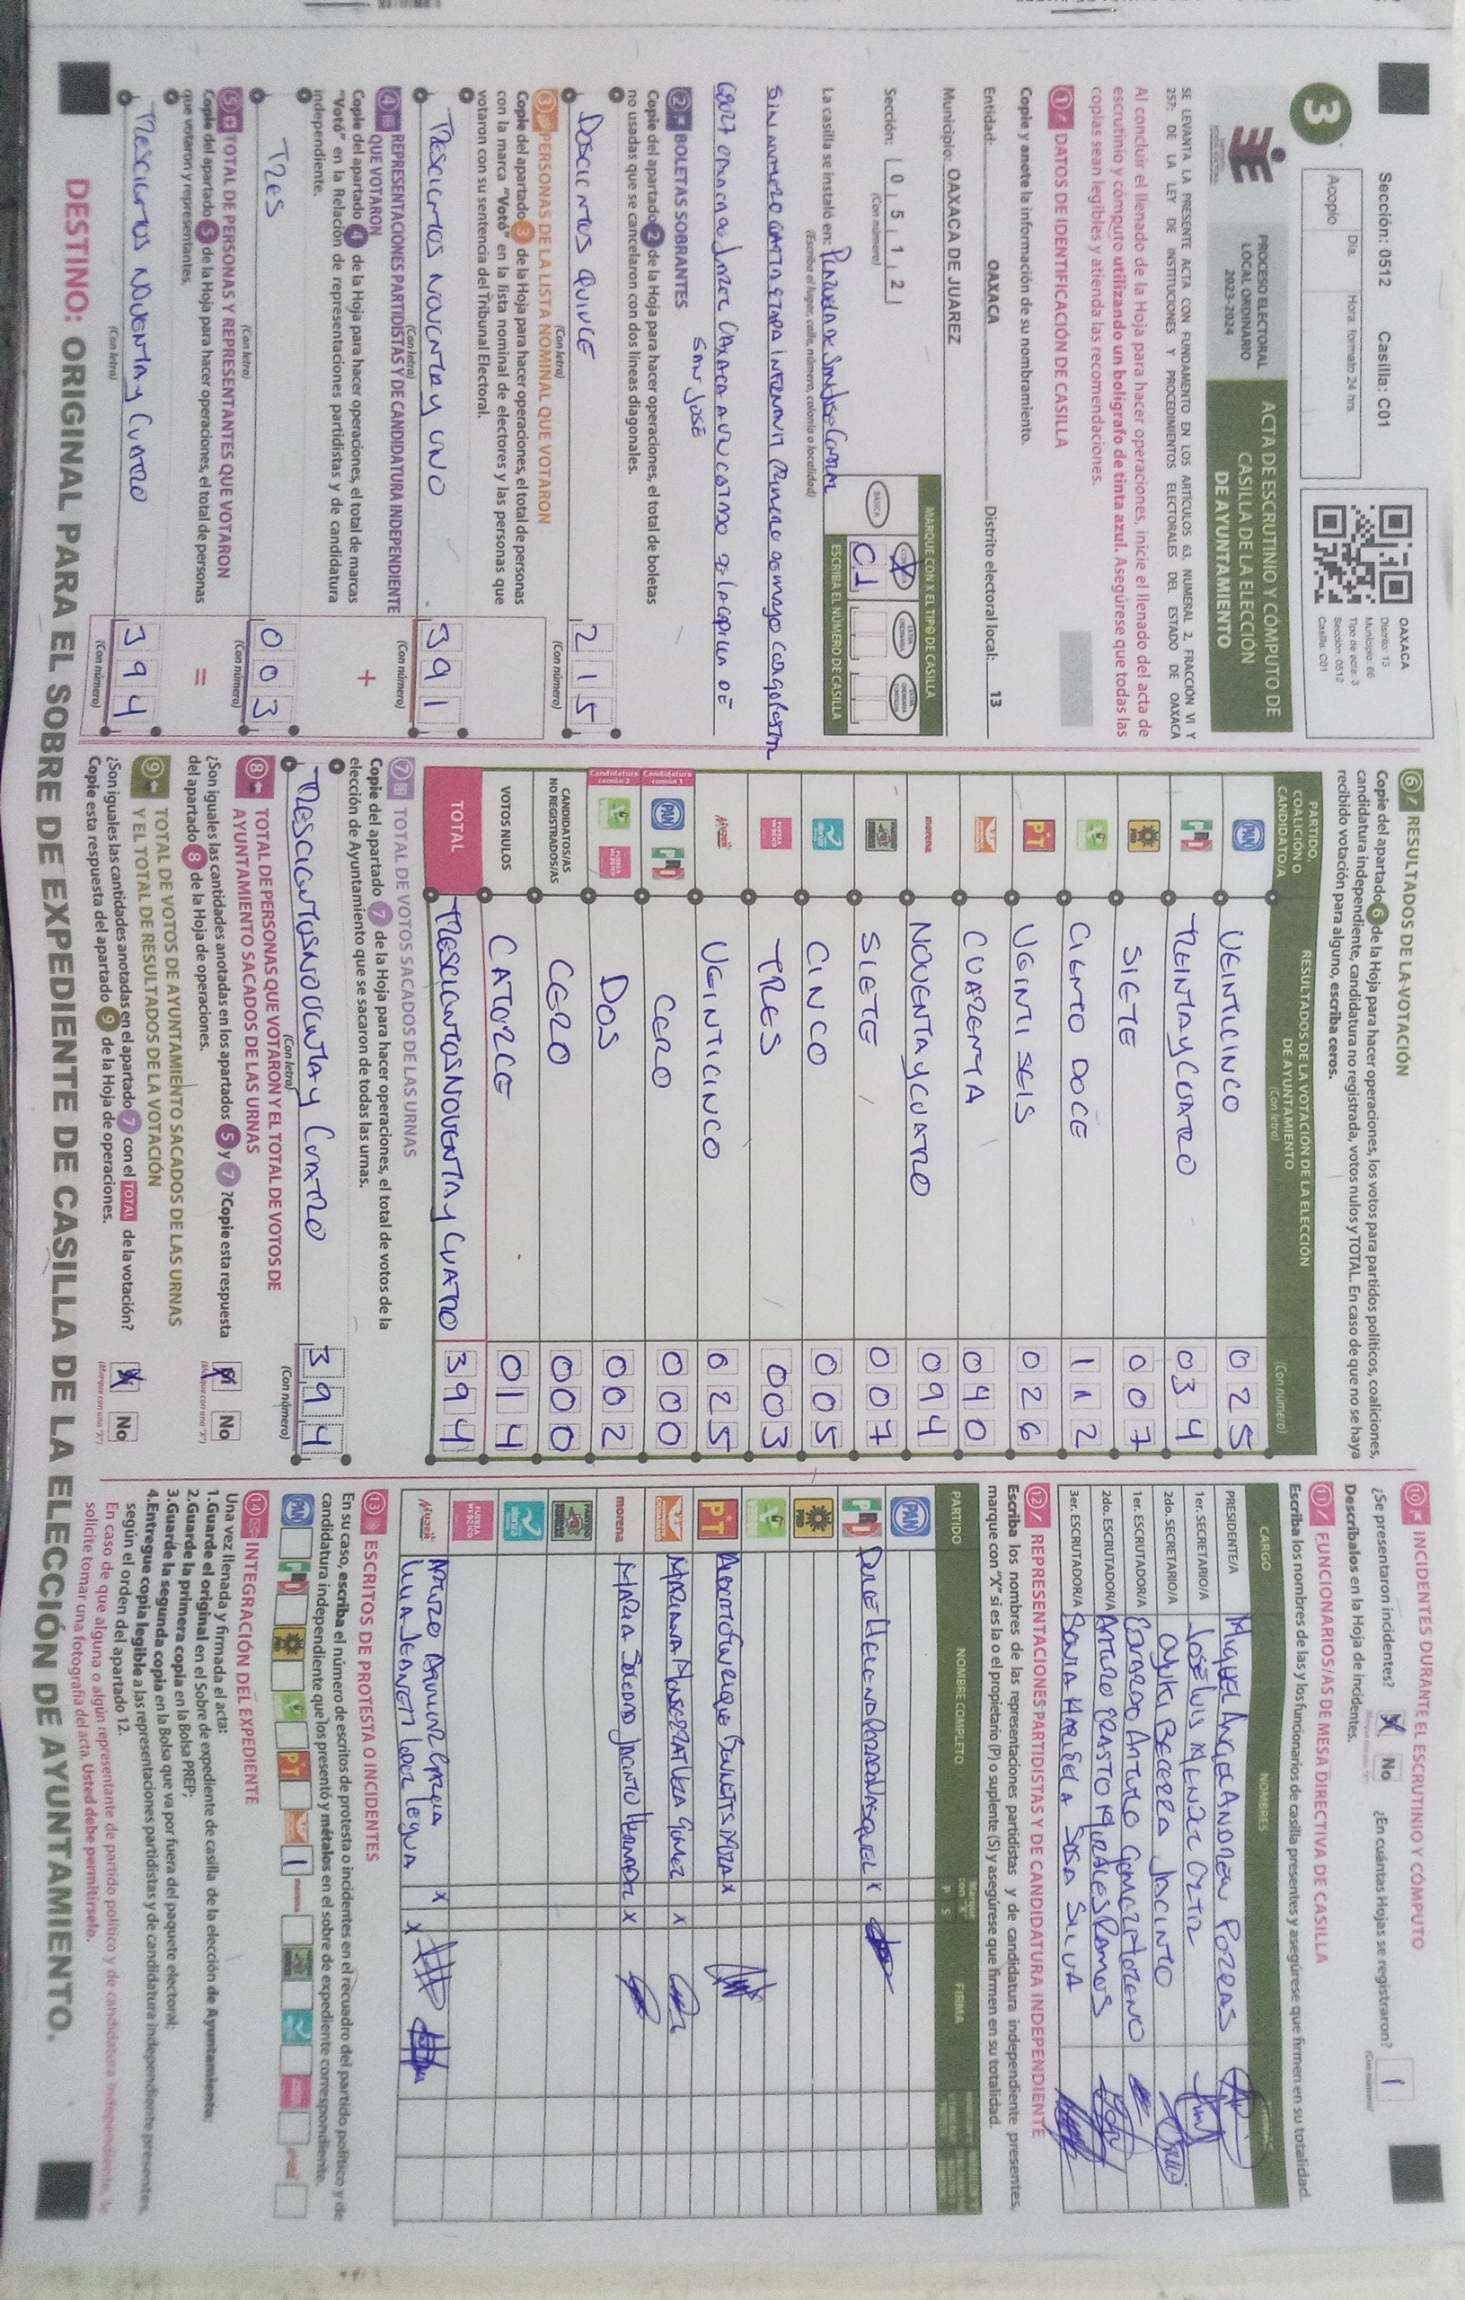 3
Sección: 0512 Casilla: C01
Acopio
Día
Hora: formato 24 hrs.
OAXACA
Distrito: 13
Municipio: 66
Tipo de acta: 3
Sección: 0512
Casilla: C01
PROCESO ELECTORAL
LOCAL ORDINARIO
2023-2024
ACTA DE ESCRUTINIO Y CÓMPUTO DE
CASILLA DE LA ELECCIÓN
DE AYUNTAMIENTO
SE LEVANTA LA PRESENTE ACTA CON FUNDAMENTO EN LOS ARTÍCULOS 63, NUMERAL 2, FRACCIÓN VI Y
257; DE LA LEY DE INSTITUCIONES Y PROCEDIMIENTOS ELECTORALES DEL ESTADO DE OAXACA
Al concluir el llenado de la Hoja para hacer operaciones, inicie el llenado del acta de
escrutinio y cómputo utilizando un bolígrafo de tinta azul. Asegúrese que todas las
copias sean legibles y atienda las recomendaciones.
1 DATOS DE IDENTIFICACIÓN DE CASILLA
Copie y anote la información de su nombramiento.
Entidad: OAXACA Distrito electoral local: 13
Municipio: OAXACA DE JUAREZ
Sección: 0 5 1 2
(Con número)
MARQUE CON X EL TIPO DE CASILLA
BÁSICA
ESCRIBA EL NÚMERO DE CASILLA
C1
La casilla se instaló en:
(Escriba el lugar, calle, número, colonia o localidad)
SAN JOSÉ
2 BOLETAS SOBRANTES
Copie del apartado 2 de la Hoja para hacer operaciones, el total de boletas
no usadas que se cancelaron con dos líneas diagonales.
DOSCIENTOS QUINCE 2 1 5
(Con letra) (Con número)
3 PERSONAS DE LA LISTA NOMINAL QUE VOTARON
Copie del apartado 3 de la Hoja para hacer operaciones, el total de personas
con la marca "Votó" en la lista nominal de electores y las personas que
votaron con su sentencia del Tribunal Electoral.
TRESCIENTOS NOVENTA Y UNO 3 9 1
(Con letra) (Con número)
4 REPRESENTACIONES PARTIDISTAS Y DE CANDIDATURA INDEPENDIENTE
QUE VOTARON
Copie del apartado 4 de la Hoja para hacer operaciones, el total de marcas
"Votó" en la Relación de representaciones partidistas y de candidatura
independiente.
+
TRES 0 0 3
(Con letra) (Con número)
5 TOTAL DE PERSONAS Y REPRESENTANTES QUE VOTARON
Copie del apartado 5 de la Hoja para hacer operaciones, el total de personas
que votaron y representantes.
=
TRESCIENTOS NOVENTA Y CUATRO 3 9 4
(Con letra) (Con número)
6 RESULTADOS DE LA VOTACIÓN
Copie del apartado 6 de la Hoja para hacer operaciones, los votos para partidos políticos, coaliciones,
candidatura independiente, candidatura no registrada, votos nulos y TOTAL. En caso de que no se haya
recibido votación para alguno, escriba ceros.
PARTIDO,
COALICIÓN O
CANDIDATO/A
RESULTADOS DE LA VOTACIÓN DE LA ELECCIÓN
DE AYUNTAMIENTO
(Con letra)
(Con número)
PAN VEINTICINCO 0 2 5
PRI TREINTA Y CUATRO 0 3 4
SIETE 0 0 7
CIENTO DOCE 1 1 2
PT VEINTI SEIS 0 2 6
CUARENTA 0 4 0
morena NOVENTA Y CUATRO 0 9 4
SIETE 0 0 7
CINCO 0 0 5
FUERZA POR MÉXICO TRES 0 0 3
MUJER VEINTICINCO 0 2 5
Candidatura común 1 PAN PRI CERO 0 0 0
Candidatura común 2 DOS 0 0 2
CANDIDATOS/AS
NO REGISTRADOS/AS CERO 0 0 0
VOTOS NULOS CATORCE 0 1 4
TOTAL TRESCIENTOS NOVENTA Y CUATRO 3 9 4
7 TOTAL DE VOTOS SACADOS DE LAS URNAS
Copie del apartado 7 de la Hoja para hacer operaciones, el total de votos de la
elección de Ayuntamiento que se sacaron de todas las urnas.
TRESCIENTOS NOVENTA Y CUATRO 3 9 4
(Con letra) (Con número)
8 TOTAL DE PERSONAS QUE VOTARON Y EL TOTAL DE VOTOS DE
AYUNTAMIENTO SACADOS DE LAS URNAS
¿Son iguales las cantidades anotadas en los apartados 5 y 7? Copie esta respuesta
del apartado 8 de la Hoja de operaciones.
No
9 TOTAL DE VOTOS DE AYUNTAMIENTO SACADOS DE LAS URNAS
Y EL TOTAL DE RESULTADOS DE LA VOTACIÓN
¿Son iguales las cantidades anotadas en el apartado 7 con el TOTAL de la votación?
Copie esta respuesta del apartado 9 de la Hoja de operaciones.
No
(Marque con una "X")
10 INCIDENTES DURANTE EL ESCRUTINIO Y CÓMPUTO
¿Se presentaron incidentes? No ¿En cuántas Hojas se registraron? 1
Descríbalos en la Hoja de incidentes.
11 FUNCIONARIOS/AS DE MESA DIRECTIVA DE CASILLA
Escriba los nombres de las y los funcionarios de casilla presentes y asegúrese que firmen en su totalidad.
CARGO NOMBRES
PRESIDENTE/A MIGUEL ANGEL ANDREW PORRAS
1er. SECRETARIO/A JOSÉ LUIS MENDEZ ORTIZ
2do. SECRETARIO/A AYUKI BECERRA JACINTO
1er. ESCRUTADOR/A GERARDO ARTURO GOMEZ MORENO
2do. ESCRUTADOR/A ARTURO ERASTO MORALES RAMOS
3er. ESCRUTADOR/A SOSA SILVA
12 REPRESENTACIONES PARTIDISTAS Y DE CANDIDATURA INDEPENDIENTE
Escriba los nombres de las representaciones partidistas y de candidatura independiente presentes,
marque con "X" si es la o el propietario (P) o suplente (S) y asegúrese que firmen en su totalidad.
PARTIDO NOMBRE COMPLETO P S FIRMA
PAN
PRI X
PT X
X
morena MARIA JACINTO HERNANDEZ X
FUERZA POR MÉXICO
MUJER ARTURO X
LILIA JEANETT LOPEZ X
13 ESCRITOS DE PROTESTA O INCIDENTES
En su caso, escriba el número de escritos de protesta o incidentes en el recuadro del partido político y de
candidatura independiente que los presentó y métalos en el sobre de expediente correspondiente.
PAN PRI PT 1 morena
14 INTEGRACIÓN DEL EXPEDIENTE
Una vez llenada y firmada el acta:
1.Guarde el original en el Sobre de expediente de casilla de la elección de Ayuntamiento;
2.Guarde la primera copia en la Bolsa PREP;
3.Guarde la segunda copia en la Bolsa que va por fuera del paquete electoral;
4.Entregue copia legible a las representaciones partidistas y de candidatura independiente presentes,
según el orden del apartado 12.
En caso de que alguna o algún representante de partido político y de candidatura independiente, le
solicite tomar una fotografía del acta. Usted debe permitírselo.
DESTINO: ORIGINAL PARA EL SOBRE DE EXPEDIENTE DE CASILLA DE LA ELECCIÓN DE AYUNTAMIENTO.